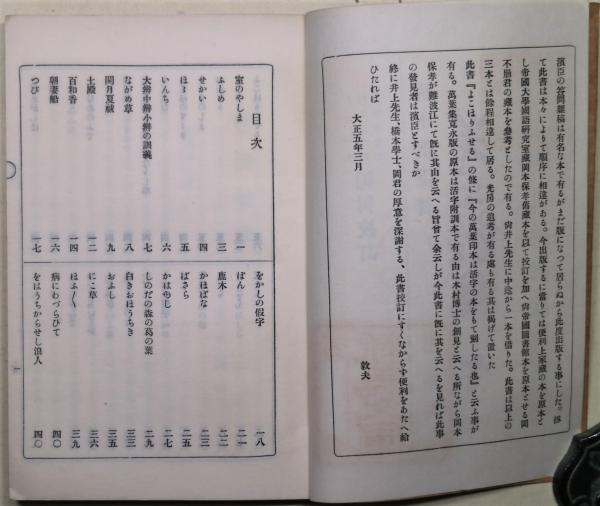 濱臣の答問雜稿は有名な本で有るがまだ版になつて居らぬから此度出版する事にした。
て此書は本々によりて順序に相違がある。今出版するに當りては便利上家藏の本を原本と
し帝國大學國語硏究室藏岡本保孝舊藏本を以て挍訂を加へ尙帝國圖書館本を原本とせる岡
不崩君の藏本を參考としたので有る。尙井上先生に中途から一本を借りた。此書は以上の
三本とは餘程相違して居る。光房の追考が有る處も有る其は揭げて置いた
此書『よこほりふせる』の條に『今の萬葉印本は活字の本をもて刻したる也』と云ふ事が
有る。萬葉集寬永版の原本は活字附訓本で有る由は木村博士の創見と云へる所ながら岡本
保孝が難波江にて旣に其由を云へる旨曾て余云しが今此書に旣に其を云へるを見れば此事
の發見者は濱臣とすべきか
終に井上先生、橋本學士、岡君の厚意を深謝する、此書挍訂にすくなからず便利をあたへ給
ひたれば
大正五年三月
敦夫
目次
室のやしま 一
ふしめ 三
せかい 四
ほぞ 五
いんち 六
大辨中辨小辨の訓義 七
ながめ草 八
閏月夏祓 九
土殿 一二
百和香 一四
朝妻船 一六
つび 一七
をかしの假字 一八
ぼん 二一
鹿木 二二
かほばな 二三
ばさら 二五
かはやしろ 二七
しのだの森の葛の葉 二九
白きおほうちき 三三
おふし 三五
にこ草 三六
ほふ〱 三九
病にわづらひて 四〇
をはうちからせし浪人 四〇